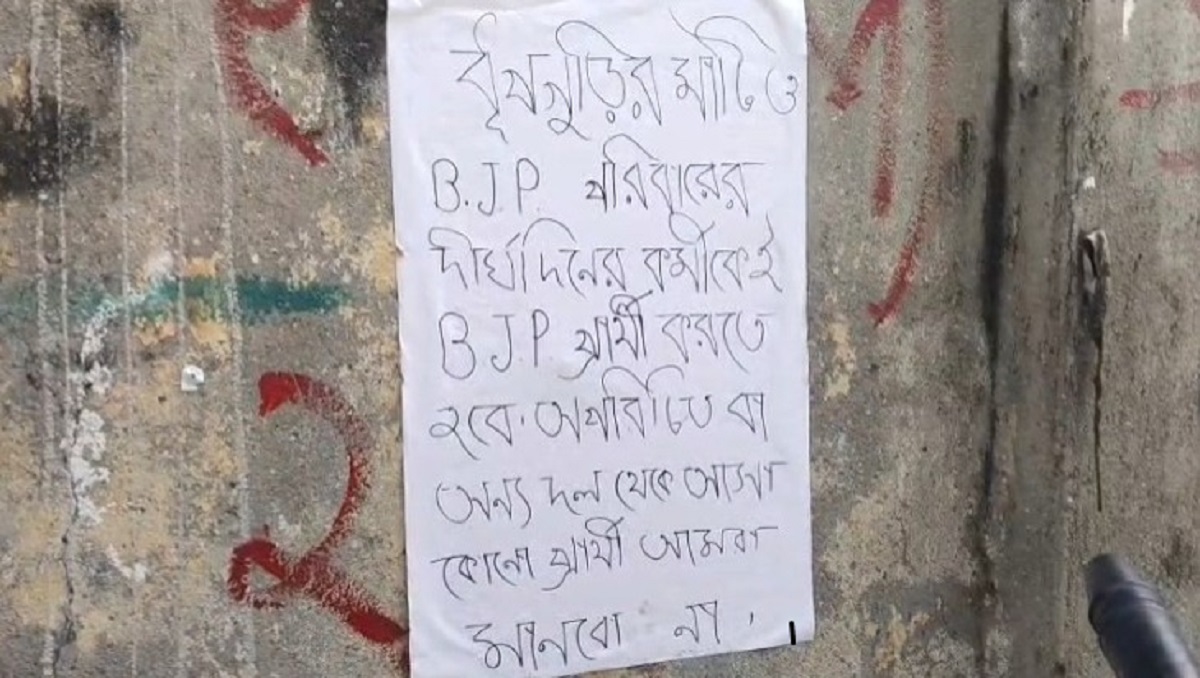 ধূপগুড়ির মাটিতে
B.J.P. পরিবারের
দীর্ঘদিনের কর্মীকেই
B.J.P প্রার্থী করতে
হবে. অপরিচিত বা
অন্য দল থেকে আসা
কোনো প্রার্থী আমরা
মানবো না.